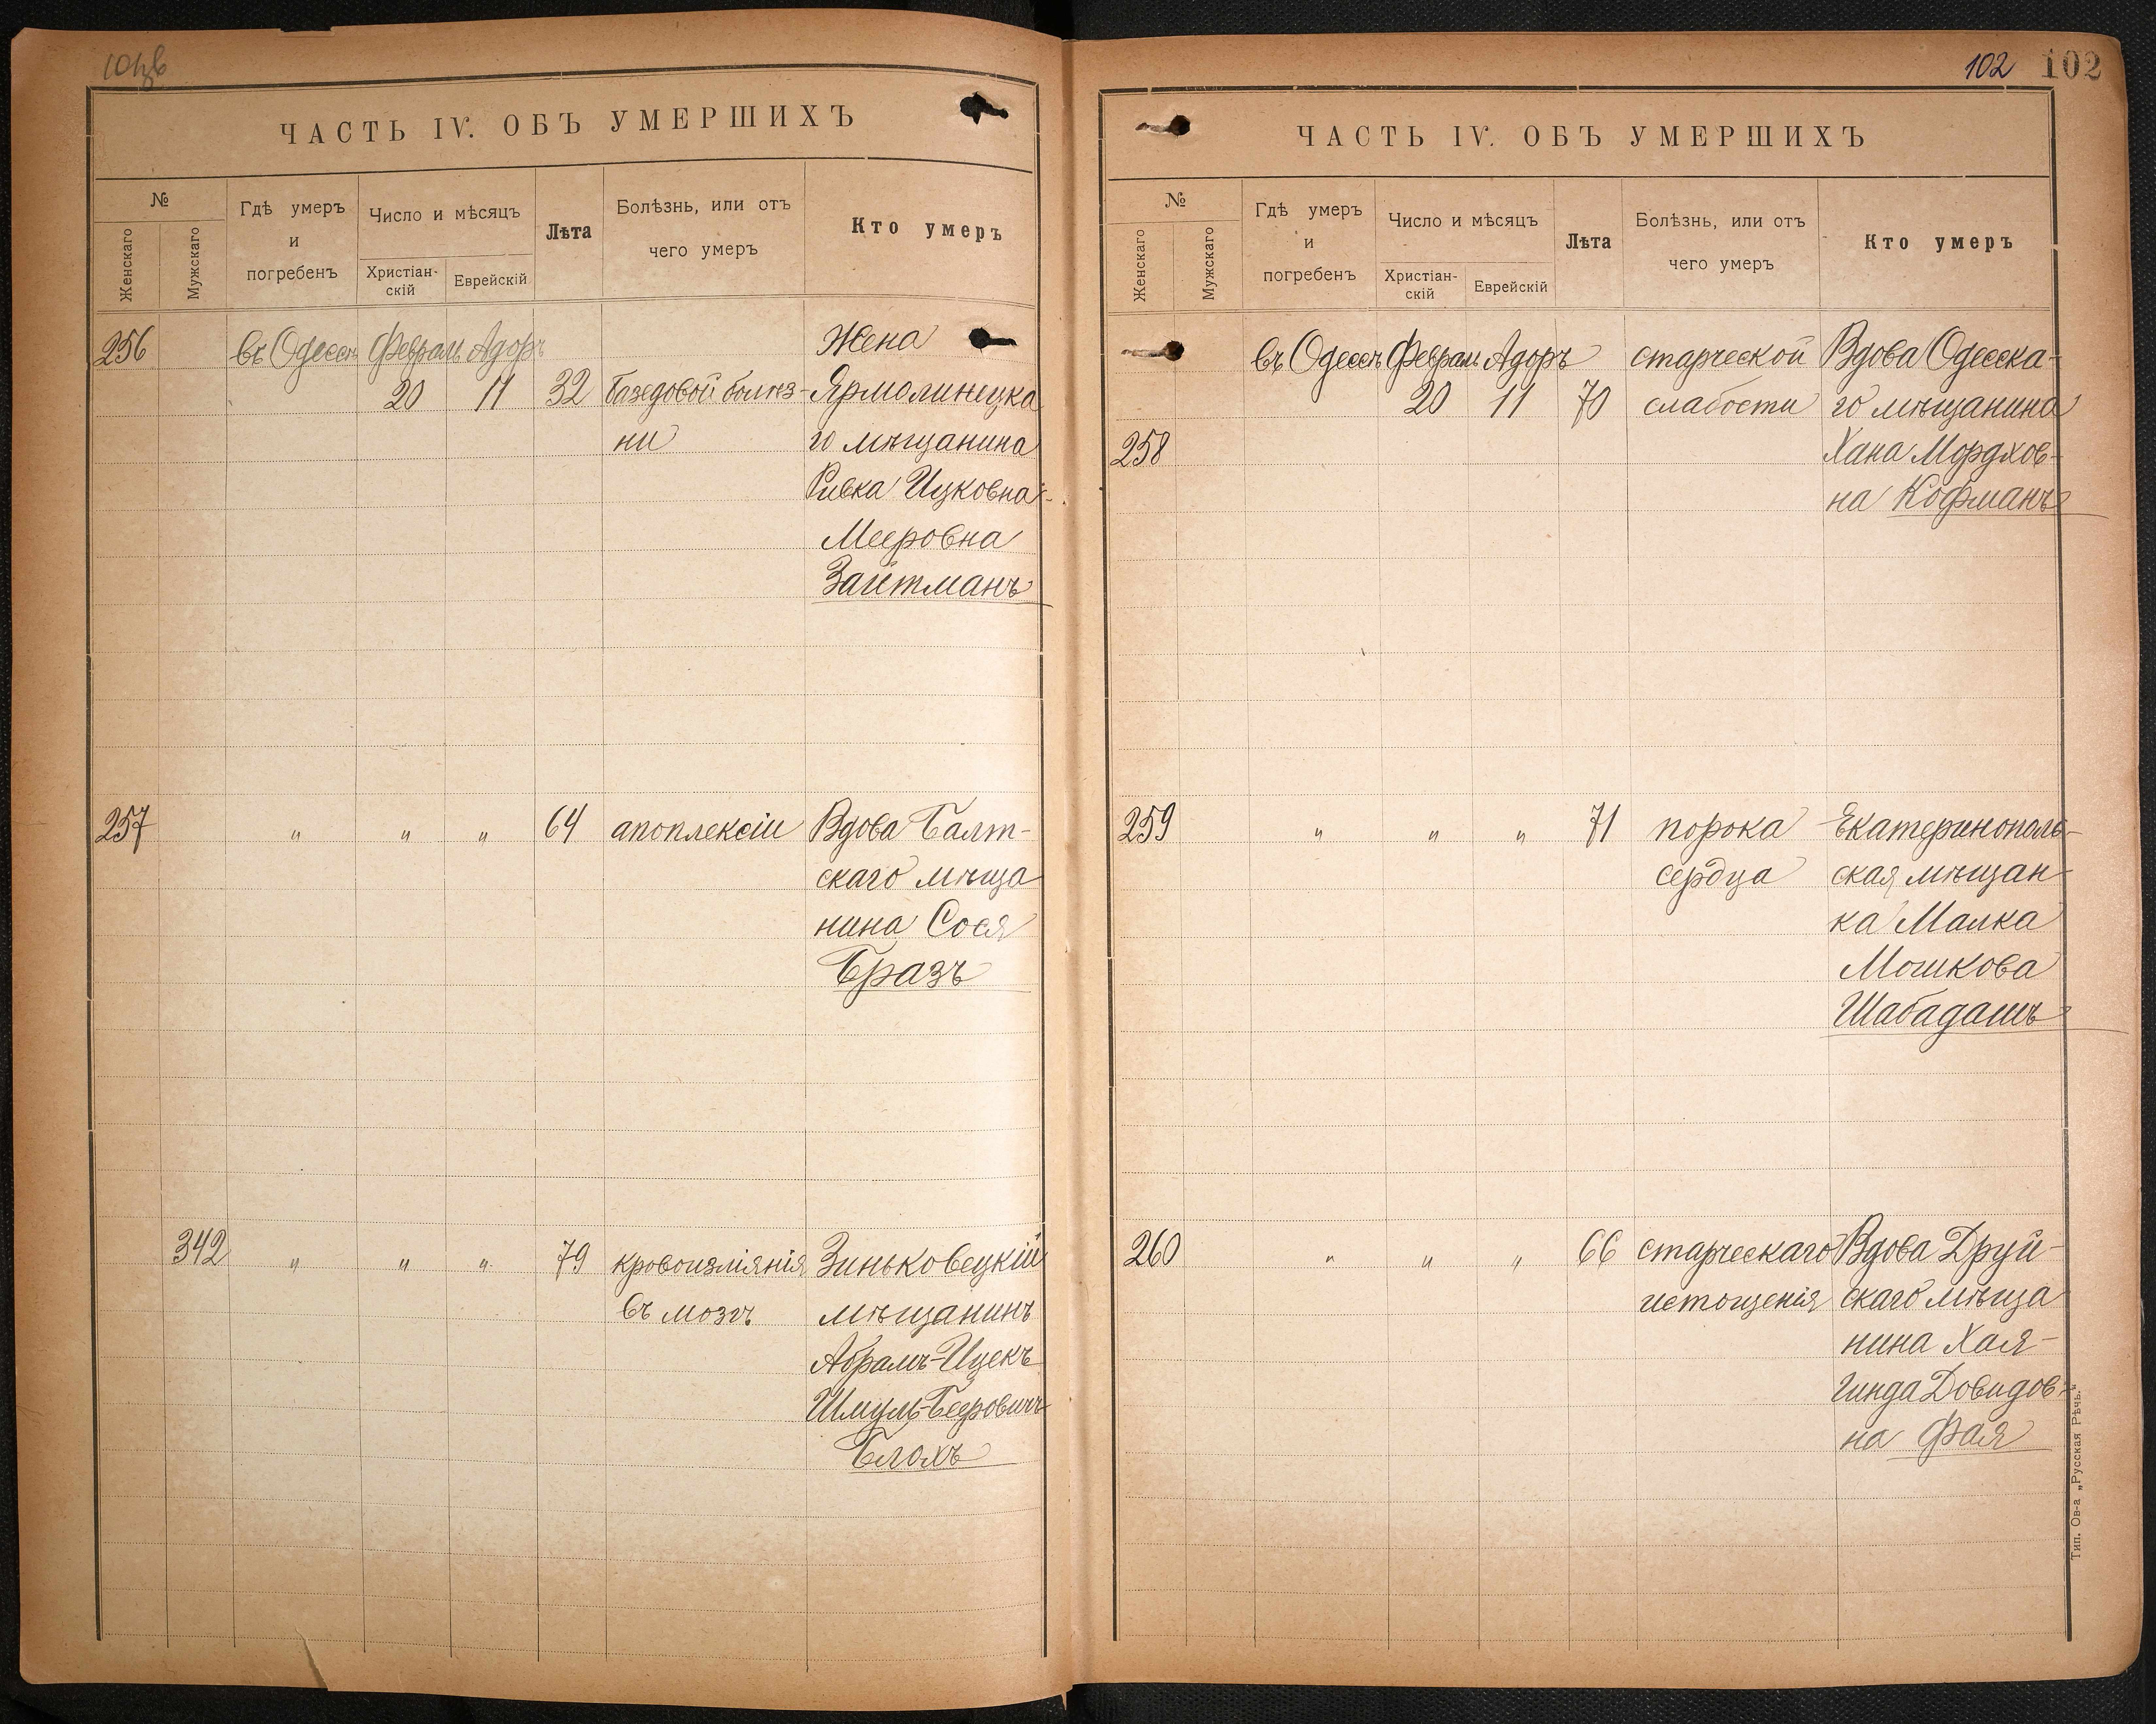 101об
ЧАСТЬ IV. ОБЪ УМЕРШИХЪ
№
Женскаго
Мужскаго
Гдѣ умеръ
и
погребенъ
Число и мѣсяцъ
Христіан-
скій
Еврейскій
Лѣта
Болѣзнь, или отъ
чего умеръ
Кто умеръ
256 въ Одессѣ Февраль Адоръ Жена
20 11 32 базедовой болѣз- Ярмолинецка
ни го мѣщанина
Ривка Ицковна-
Мееровна
Зайтманъ
257 " " " 64 апоплексіи Вдова Балт-
скаго мѣща
нина Сося
Бразъ
342 " " " 79 кровоизліянія Зиньковецкій
въ мозгъ мѣщанинъ
Абрамъ-Ицекъ
Шмуль-Беровичъ
Блохъ
102 102
ЧАСТЬ IV. ОБЪ УМЕРШИХЪ
№
Женскаго
Мужскаго
Гдѣ умеръ
и
погребенъ
Число и мѣсяцъ
Христіан-
скій
Еврейскій
Лѣта
Болѣзнь, или отъ
чего умеръ
Кто умеръ
въ Одессѣ Февраль Адоръ старческой Вдова Одесска-
20 11 70 слабости го мѣщанина
258 Хана Мордхов-
на Кофманъ
259 " " " 71 порока Екатеринополь-
сердца ская мѣщан-
ка Малка
Мошкова
Шабадашъ
260 " " " 66 старческаго Вдова Друй-
истощенія скаго мѣща
нина Хая-
Гинда Довидов-
на Фая
Тип. Ов-а „Русская Рѣчь."